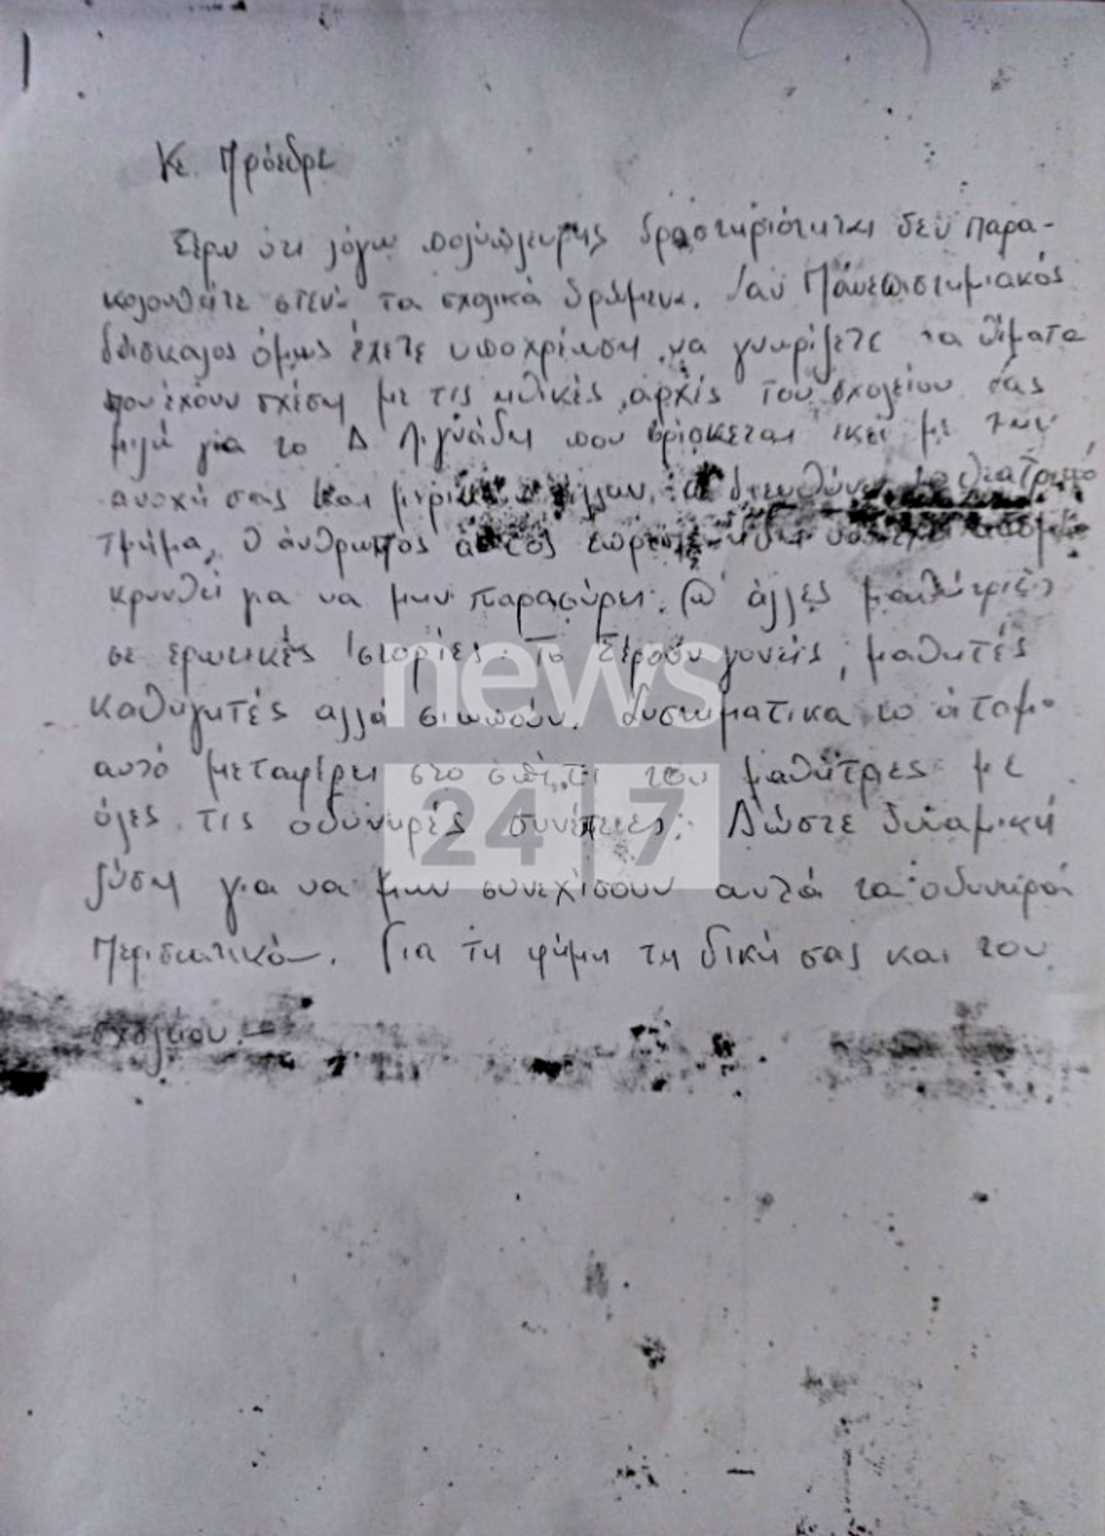 Κε Πρόεδρε
Ξέρω ότι λόγω πολύπλευρης δραστηριότητας δεν παρα-
κολουθείτε στενά τα σχολικά δρώμενα. Σαν Πανεπιστημιακός
δάσκαλος όμως έχετε υποχρέωση να γνωρίζετε τα θέματα
που έχουν σχέση με τις ηθικές αρχές του σχολείου σας
μιλώ για το Δ Λιγνάδη που βρίσκεται εκεί με την
ανοχή σας και μερικών άλλων, να διευθύνει το θεατρικό
τμήμα, ο άνθρωπος αυτός έπρεπε
κρυνθεί για να μην παρασύρει άλλες μαθήτριες
σε ερωτικές ιστορίες. Το ξέρουν γονείς, μαθητές
καθηγητές αλλά σιωπούν. Συστηματικά το άτομο
αυτό μεταφέρει στο σπίτι του μαθήτριες με
όλες τις οδυνηρές συνέπειες. Δώστε δυναμική
λύση για να μην συνεχίσουν αυτά τα οδυνηρά
περιστατικά. Για τη φήμη τη δική σας και του
σχολείου.
news
24|7